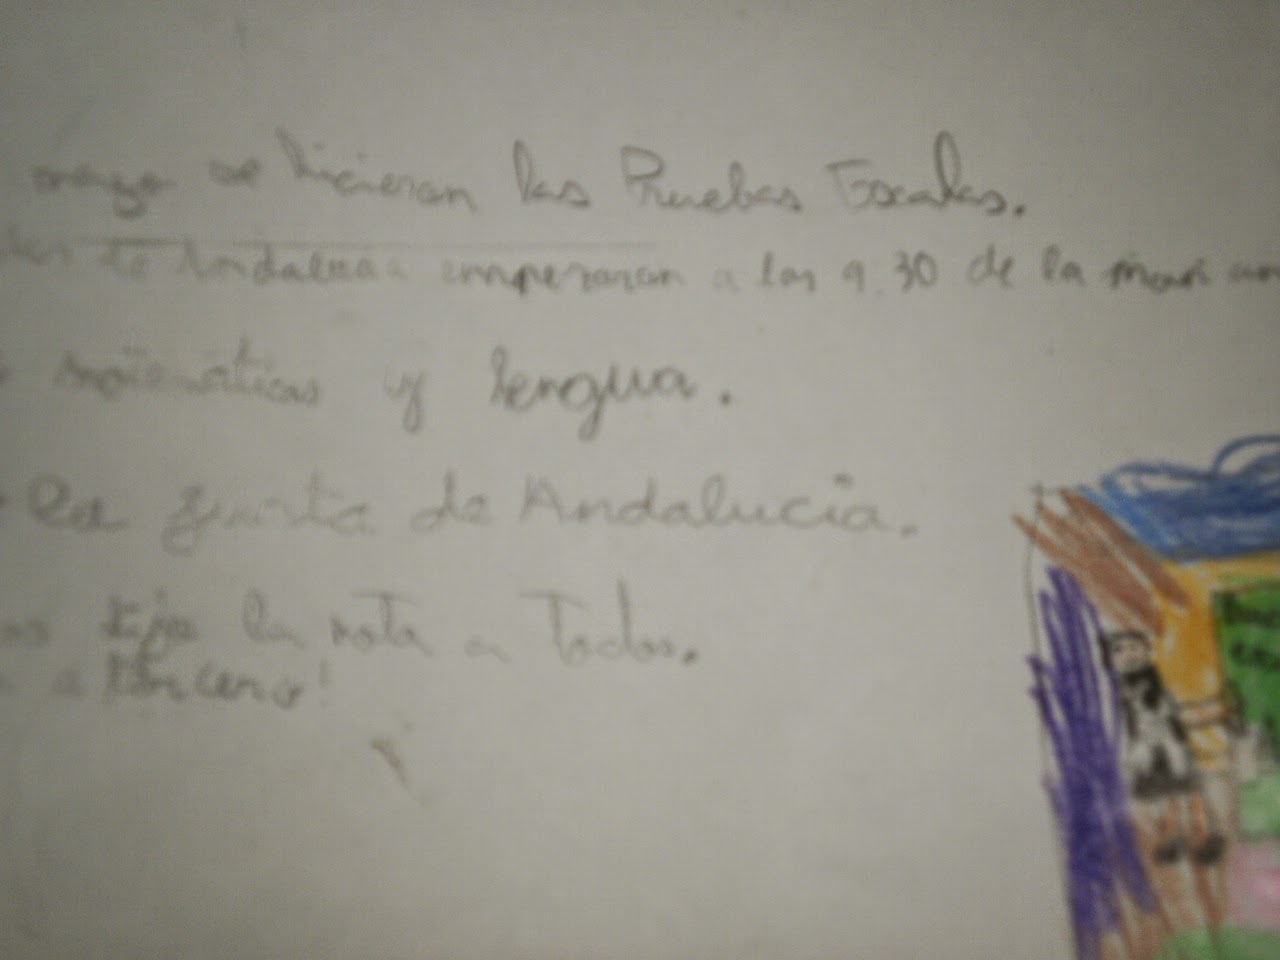 mayo se hicieran las Pruebas Escalas.
de Andalucia a las 9.30 de la
matematicas y lengua.
la junta de Andalucia.
dijo la nota a Todos.
a tercero!